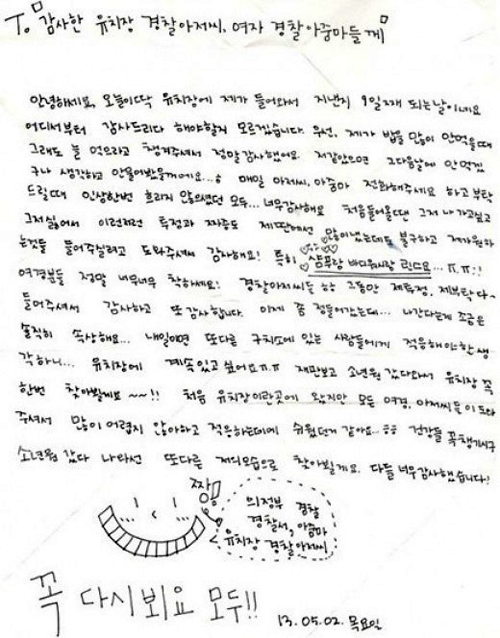 To. 감사한 유치장 경찰아저씨, 여자 경찰아줌마들께
안녕하세요, 오늘이딱 유치장에 제가 들어와서 지낸지 9일째 되는날이네요
어디서부터 감사드리다 해야할지 모르겠습니다. 우선, 제가 밥을 많이 안먹을때
그래도 늘 먹으라고 챙겨주셔서 정말감사했어요. 저같았으면 그다음날에 안먹겠
구나 생각하고 안물어봤을꺼에요...ㅎ 매일 아저씨,아줌마 전화해주세요 하고 부탁
드릴때 인상한번 흐리지 않으셨던 모두... 너무감사해요 처음들어올땐 그저 나가고싶고
그저싫어서 이런저런 투정과 짜증도 제딴에선 많이냈는데도 불구하고 제가원하
는것들 들어주실려고 도와주셔서 감사해요! 특히 샴푸랑 바디워시랑 린스요...ㅠ.ㅠ;!
여경분들 정말 너무너무 착하세요! 경찰아저씨들 한 그동안 제투정, 제부탁다
들어주셔서 감사하고 또 감사합니다. 이제 좀 정들어갔는데... 나간다는게 조금은
솔직히 속상해요... 내일이면 또다른 구치소에 있는 사람들에게 적응해야한생
각하니... 유치장에 계속있고 싶어요ㅠㅠ 재판보고 소년원 갔다와서 유치장 꼭
한번 찾아뵐게요 ~~!! 처음 유치장이란곳에 왔지만 모든 여경, 아저씨들이 도와
주셔서 많이 어렵지 않아하고 적응하는데에 쉬웠던거 같아요...ㅎㅎ 건강들 꼭챙기시구
소년원 갔다 나와선 또다른 저의모습으로 찾아뵐게요. 다들 너무감사했습니다!
짱!
의정부 경찰
경찰서, 아줌마
유치장 경찰아저씨
꼭 다시뵈요 모두!!
13.05.02.목요일